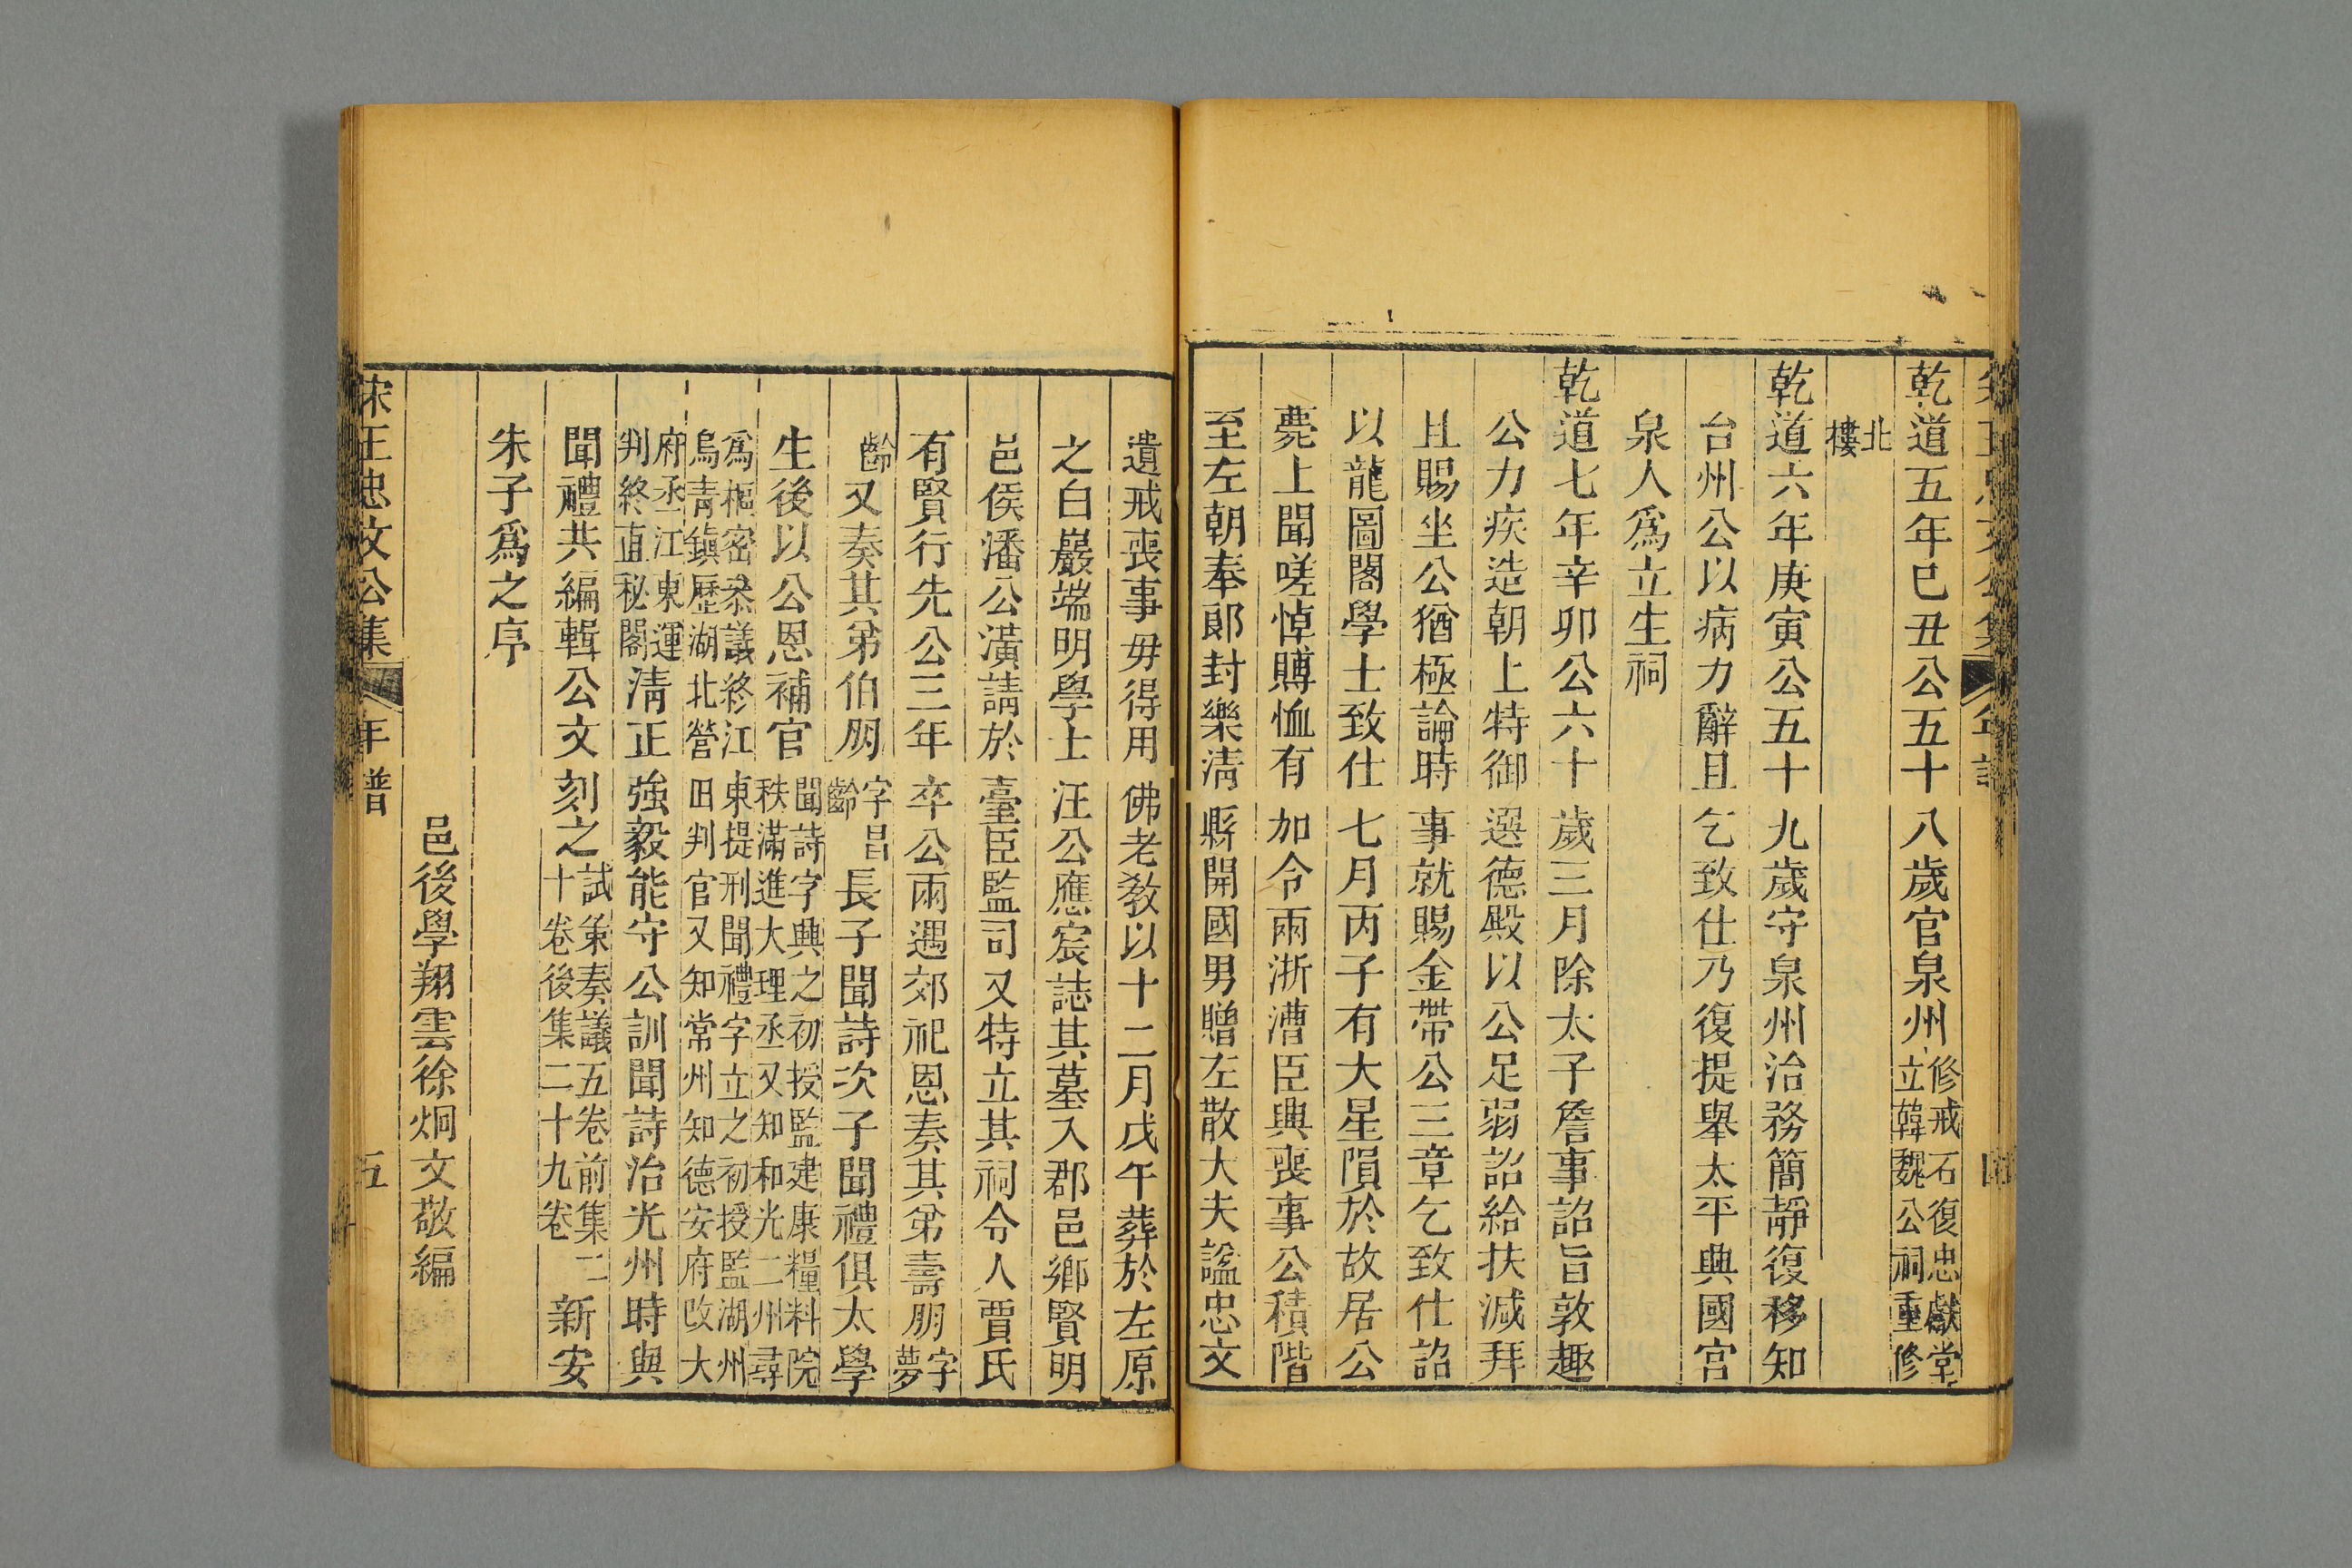 乾道五年己丑公五十八歲官泉州修戒石復忠獻堂立韓魏公祠重修
北樓
乾道六年庚寅公五十九歲守泉州治務簡靜復移知
台州公以病力辭且乞致仕乃復提舉太平興國宮
泉人爲立生祠
乾道七年辛卯公六十歲三月除太子詹事詔旨敦趣
公力疾造朝上特御選德殿以公足弱詔給扶減拜
且賜坐公猶極論時事就賜金帶公三章乞致仕詔
以龍圖閣學士致仕七月丙子有大星隕於故居公
薨上聞嗟悼賻恤有加令兩浙漕臣興喪事公積階
至左朝奉郎封樂淸縣開國男贈左散大夫諡忠文
遺戒喪事毋得用佛老教以十二月戊午葬於左原
之白巖端明學士汪公應宸誌其墓入郡邑鄉賢明
邑侯潘公潢請於臺臣監司又特立其祠令人賈氏
有賢行先公三年卒公兩遇郊祀恩奏其弟壽朋字夢
齡又奏其弟伯朋字昌齡長子聞詩次子聞禮俱太學
生後以公恩補官聞詩字興之初授監建康糧料院秩滿進大理丞又知和光二州尋
爲樞密叅議終江東提刑聞禮字立之初授監湖州烏青鎮歷湖北營田判官又知常州知德安府改大
府丞江東運判終直秘閣淸正強毅能守公訓聞詩治光州時與
聞禮共編輯公文刻之試策奏議五卷前集二十卷後集二十九卷新安
朱子爲之序
邑後學翔雲徐炯文敬編
宋王忠文公集
年譜
五